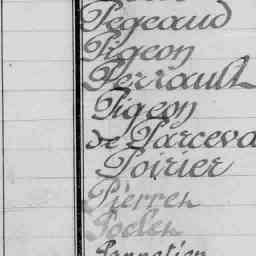 Pegeaud
Pigeon
Perrault
Pigeon
de Parceva
Poirier
Pierren
Poelen
Pannetier